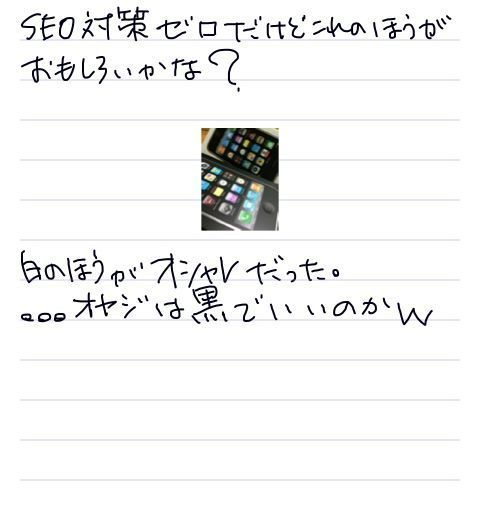 SEO対策ゼロだけどこれのほうが
おもしろいかな?
白のほうがオシャレだった。
...オヤジは黒でいいのかw